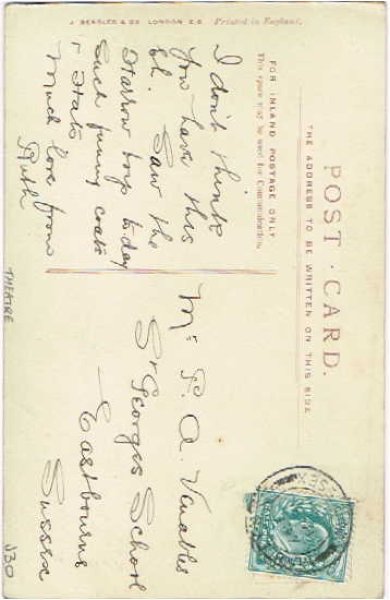 J. BEAGLES & CO. LONDON E.C. Printed in England.
POST CARD.
THE ADDRESS TO BE WRITTEN ON THIS SIDE
FOR INLAND POSTAGE ONLY
This space may be used for Communication.
I don't think
You have this
bl. Saw the
Harrow boys to-day
Such funny coats
& Hats
Much love from
Ruth
Mr P. A. Venables
St Georges School
Eastbourne
Sussex
THEATRE
J30